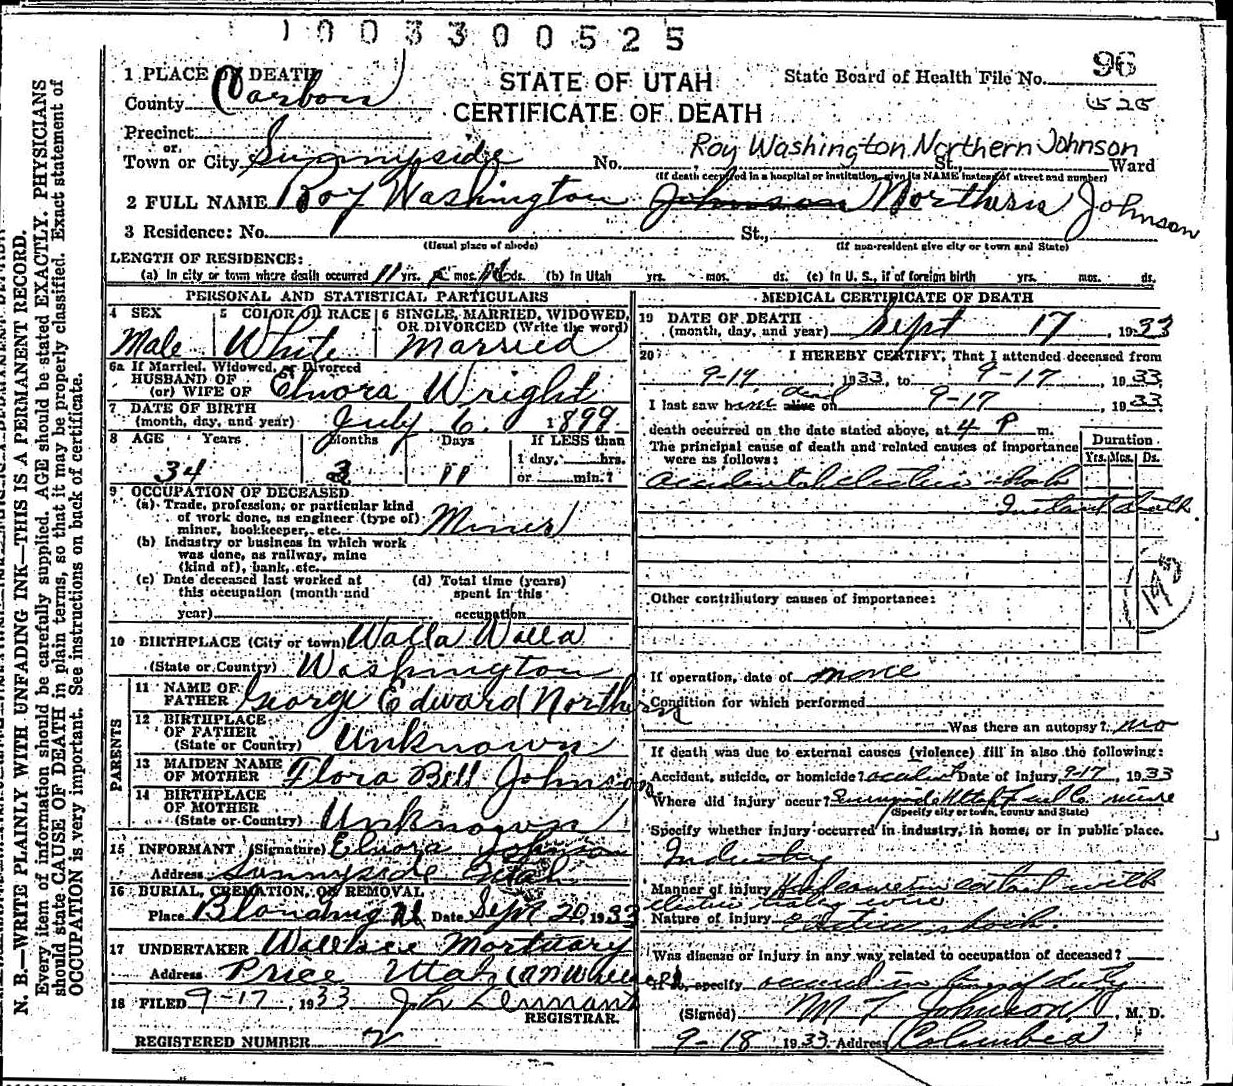 1003300525
1 PLACE OF DEATH
STATE OF UTAH
State Board of Health File No. 96
County Carbon
CERTIFICATE OF DEATH
525
Precinct
or
Roy Washington Northern Johnson
Town or City Sunnyside No. St., Ward
(If death occurred in a hospital or institution, give its NAME instead of street and number)
2 FULL NAME Roy Washington Johnson Northern Johnson
3 Residence: No. St.,
(Usual place of abode) (If non-resident give city or town and State)
LENGTH OF RESIDENCE:
(a) In city or town where death occurred 11 yrs. mos. ds. (b) In Utah yrs. mos. ds. (c) In U. S., if of foreign birth yrs. mos. ds.
PERSONAL AND STATISTICAL PARTICULARS
4 SEX 5 COLOR OR RACE 6 SINGLE, MARRIED, WIDOWED,
OR DIVORCED (Write the word)
Male White Married
6a If Married, Widowed, or Divorced
HUSBAND OF
(or) WIFE OF Elnora Wright
7 DATE OF BIRTH
(month, day, and year) July 6, 1899
8 AGE Years Months Days If LESS than
1 day, hrs.
34 2 11 or min.?
9 OCCUPATION OF DECEASED
(a) Trade, profession, or particular kind
of work done, as engineer (type of)
miner, bookkeeper, etc. Miner
(b) Industry or business in which work
was done, as railway, mine
(kind of), bank, etc.
(c) Date deceased last worked at (d) Total time (years)
this occupation (month and spent in this
year) occupation
10 BIRTHPLACE (City or town) Walla Walla
(State or Country) Washington
PARENTS
11 NAME OF
FATHER George Edward Northern
12 BIRTHPLACE
OF FATHER
(State or Country) Unknown
13 MAIDEN NAME
OF MOTHER Flora Bell Johnson
14 BIRTHPLACE
OF MOTHER
(State or Country) Unknown
15 INFORMANT (Signature) Elnora Johnson
Address Sunnyside Utah
16 BURIAL, CREMATION, OR REMOVAL
Place Blanding U Date Sept 20, 1933
17 UNDERTAKER Wallace Mortuary
Address Price Utah
18 FILED 9-17, 1933
REGISTRAR.
REGISTERED NUMBER 2
MEDICAL CERTIFICATE OF DEATH
19 DATE OF DEATH
(month, day, and year) Sept 17, 1933
20 I HEREBY CERTIFY, That I attended deceased from
9-17, 1933, to 9-17, 1933
I last saw him alive on dead 9-17, 1933
death occurred on the date stated above, at 4 P m.
The principal cause of death and related causes of importance
were as follows:
Duration
Yrs. Mos. Ds.
Accidental electric shock
Instant death
Other contributory causes of importance:
If operation, date of none
Condition for which performed
Was there an autopsy? no
If death was due to external causes (violence) fill in also the following:
Accident, suicide, or homicide? accident Date of injury 9-17, 1933
Where did injury occur? Sunnyside Utah Fuel Co. mine
(Specify city or town, county and State)
Specify whether injury occurred in industry, in home, or in public place.
Industry
Manner of injury in contact with
electric trolley wire
Nature of injury Electric shock.
Was disease or injury in any way related to occupation of deceased?
If so, specify occured in line of duty
(Signed) M T Johnson, M. D.
9-18 1933 Address Columbia
N. B.—WRITE PLAINLY WITH UNFADING INK—THIS IS A PERMANENT RECORD.
Every item of information should be carefully supplied. AGE should be stated EXACTLY. PHYSICIANS
should state CAUSE OF DEATH in plain terms, so that it may be properly classified. Exact statement of
OCCUPATION is very important. See instructions on back of certificate.